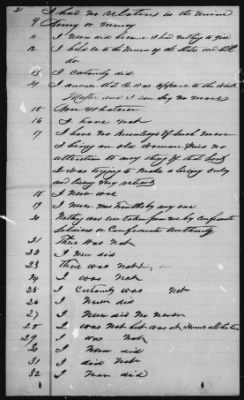 I had no relatives in the Union
9 Army or Navy
I Never did because I had nothing to give
12 I held on to the Union of the States and still
do
13 I certainly did
14 I answer that I was opposed to the whole
matter and I can say no more
15 Non Whatever
16 I have not
17 I have no knowledge of such
I being an old woman paid no
attention to any thing of that
I was trying to make a living only
and
18 I never was
19 I never was by any one
20 Nothing was ever taken from me by Confederate
Soldiers or Confederate Authority
21 There was not
22 I never did
23 There was not
24 I was not
25 I certainly was not
26 I never did
27 I never did No never
28 I was not but was at Home all the time
29 I was not
30 I never did
31 I did not
32 I never did